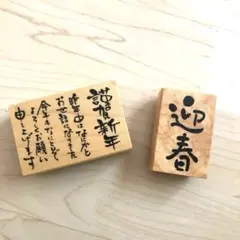 謹賀新年
昨年中はなにかと
お世話になりました
今年もなにとぞ
よろしくお願い
申し上げます
迎春